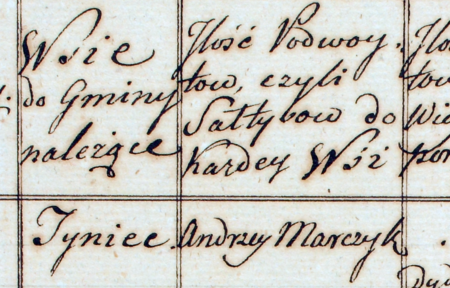 Wsie
do Gminy
należące
Ilość Podwoy-
tow, czyli
Sałtysow do
Kazdey Wśi
Tyniec.
Andrzy Marczyk